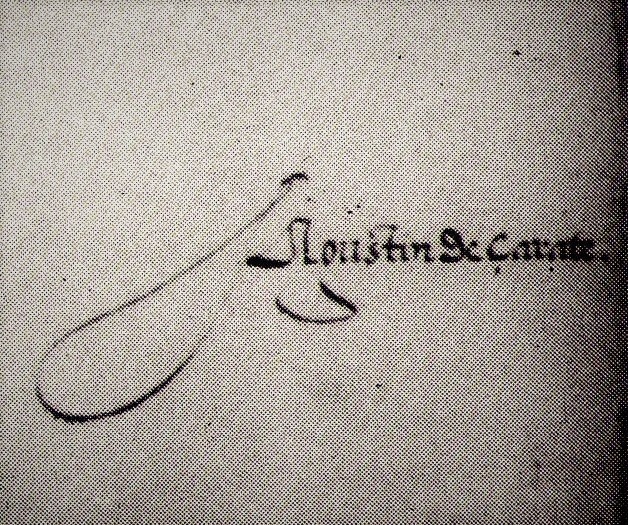 Agustin de çarate.